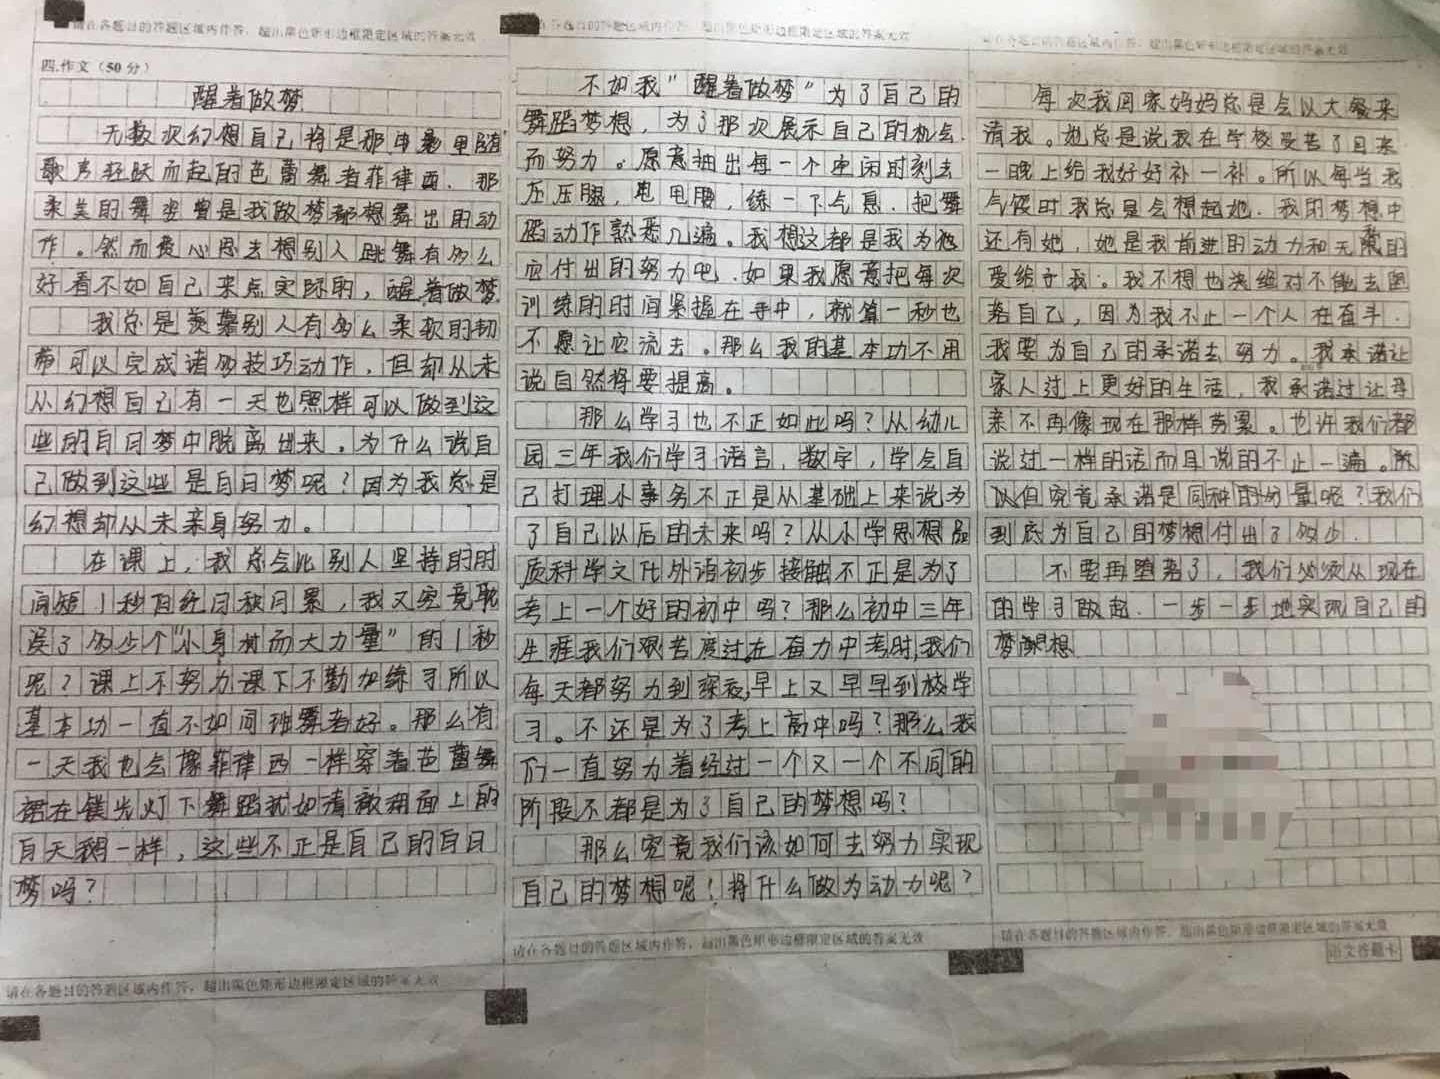 请在各题目的答题区域内作答，超出黑色矩形边框限定区域的答案无效
四.作文（50分）
醒着做梦
无数次幻想自己将是那电影里随
歌声轻跃而起的芭蕾舞者菲律西、那
柔美的舞姿曾是我做梦都想舞出的动
作。然而费心思去想别人跳舞有多么
好看不如自己来点实际的，醒着做梦
我总是羡慕别人有多么柔软的韧
带可以完成诸多技巧动作，但却从未
从幻想自己有一天也照样可以做到这
些的白日梦中脱离出来。为什么说自
己做到这些是白日梦呢？因为我总是
幻想却从未亲身努力。
在课上，我总会比别人坚持的时
间短1秒日经月积月累，我又究竟耽
误了多少个“小身材而大力量”的1秒
呢？课上不努力课下不勤加练习所以
基本功一直不如同班舞者好。那么有
一天我也会像菲律西一样穿着芭蕾舞
裙在镁光灯下舞蹈犹如清澈湖面上的
白天鹅一样，这些不正是自己的白日
梦吗？
请在各题目的答题区域内作答，超出黑色矩形边框限定区域的答案无效
请在各题目的答题区域内作答，超出黑色矩形边框限定区域的答案无效
不如我“醒着做梦”为了自己的
舞蹈梦想，为了那次展示自己的机会
而努力。愿意抽出每一个空闲时刻去
压压腿，甩甩腰，练一下气息、把舞
蹈动作熟悉几遍。我想这都是我为他
应付出的努力吧、如果我愿意把每次
训练的时间紧握在手中，就算一秒也
不愿让它流去。那么我的基本功不用
说自然将要提高。
那么学习也不正如此吗？从幼儿
园三年我们学习语言，数字，学会自
己打理小事务不正是从基础上来说为
了自己以后的未来吗？从小学思想品
质科学文化外语初步接触不正是为了
考上一个好的初中吗？那么初中三年
生涯我们艰苦度过在奋力中考时，我们
每天都努力到深夜，早上又早早到校学
习。不还是为了考上高中吗？那么我
们一直努力着经过一个又一个不同的
阶段不都是为了自己的梦想吗？
那么究竟我们该如何去努力实现
自己的梦想呢！将什么做为动力呢？
请在各题目的答题区域内作答，超出黑色矩形边框限定区域的答案无效
请在各题目的答题区域内作答，超出黑色矩形边框限定区域的答案无效
每次我回家妈妈总是会以大餐来
请我。她总是说我在学校受苦了回来
一晚上给我好好补一补。所以每当我
气馁时我总是会想起她、我的梦想中
还有她，她是我前进的动力和无私的
爱给予我；我不想也决绝对不能去堕
落自己，因为我不止一个人在奋斗、
我要为自己的承诺去努力。我承诺让
家人过上更好的生活，我承诺过让母
亲不再像现在那样劳累。也许我们都
说过一样的话而且说的不止一遍。所
以但究竟承诺是同种的分量呢？我们
到底为自己的梦想付出了多少、
不要再堕落了，我们必须从现在
的学习做起、一步一步地实现自己的
梦想
请在各题目的答题区域内作答，超出黑色矩形边框限定区域的答案无效
语文答题卡